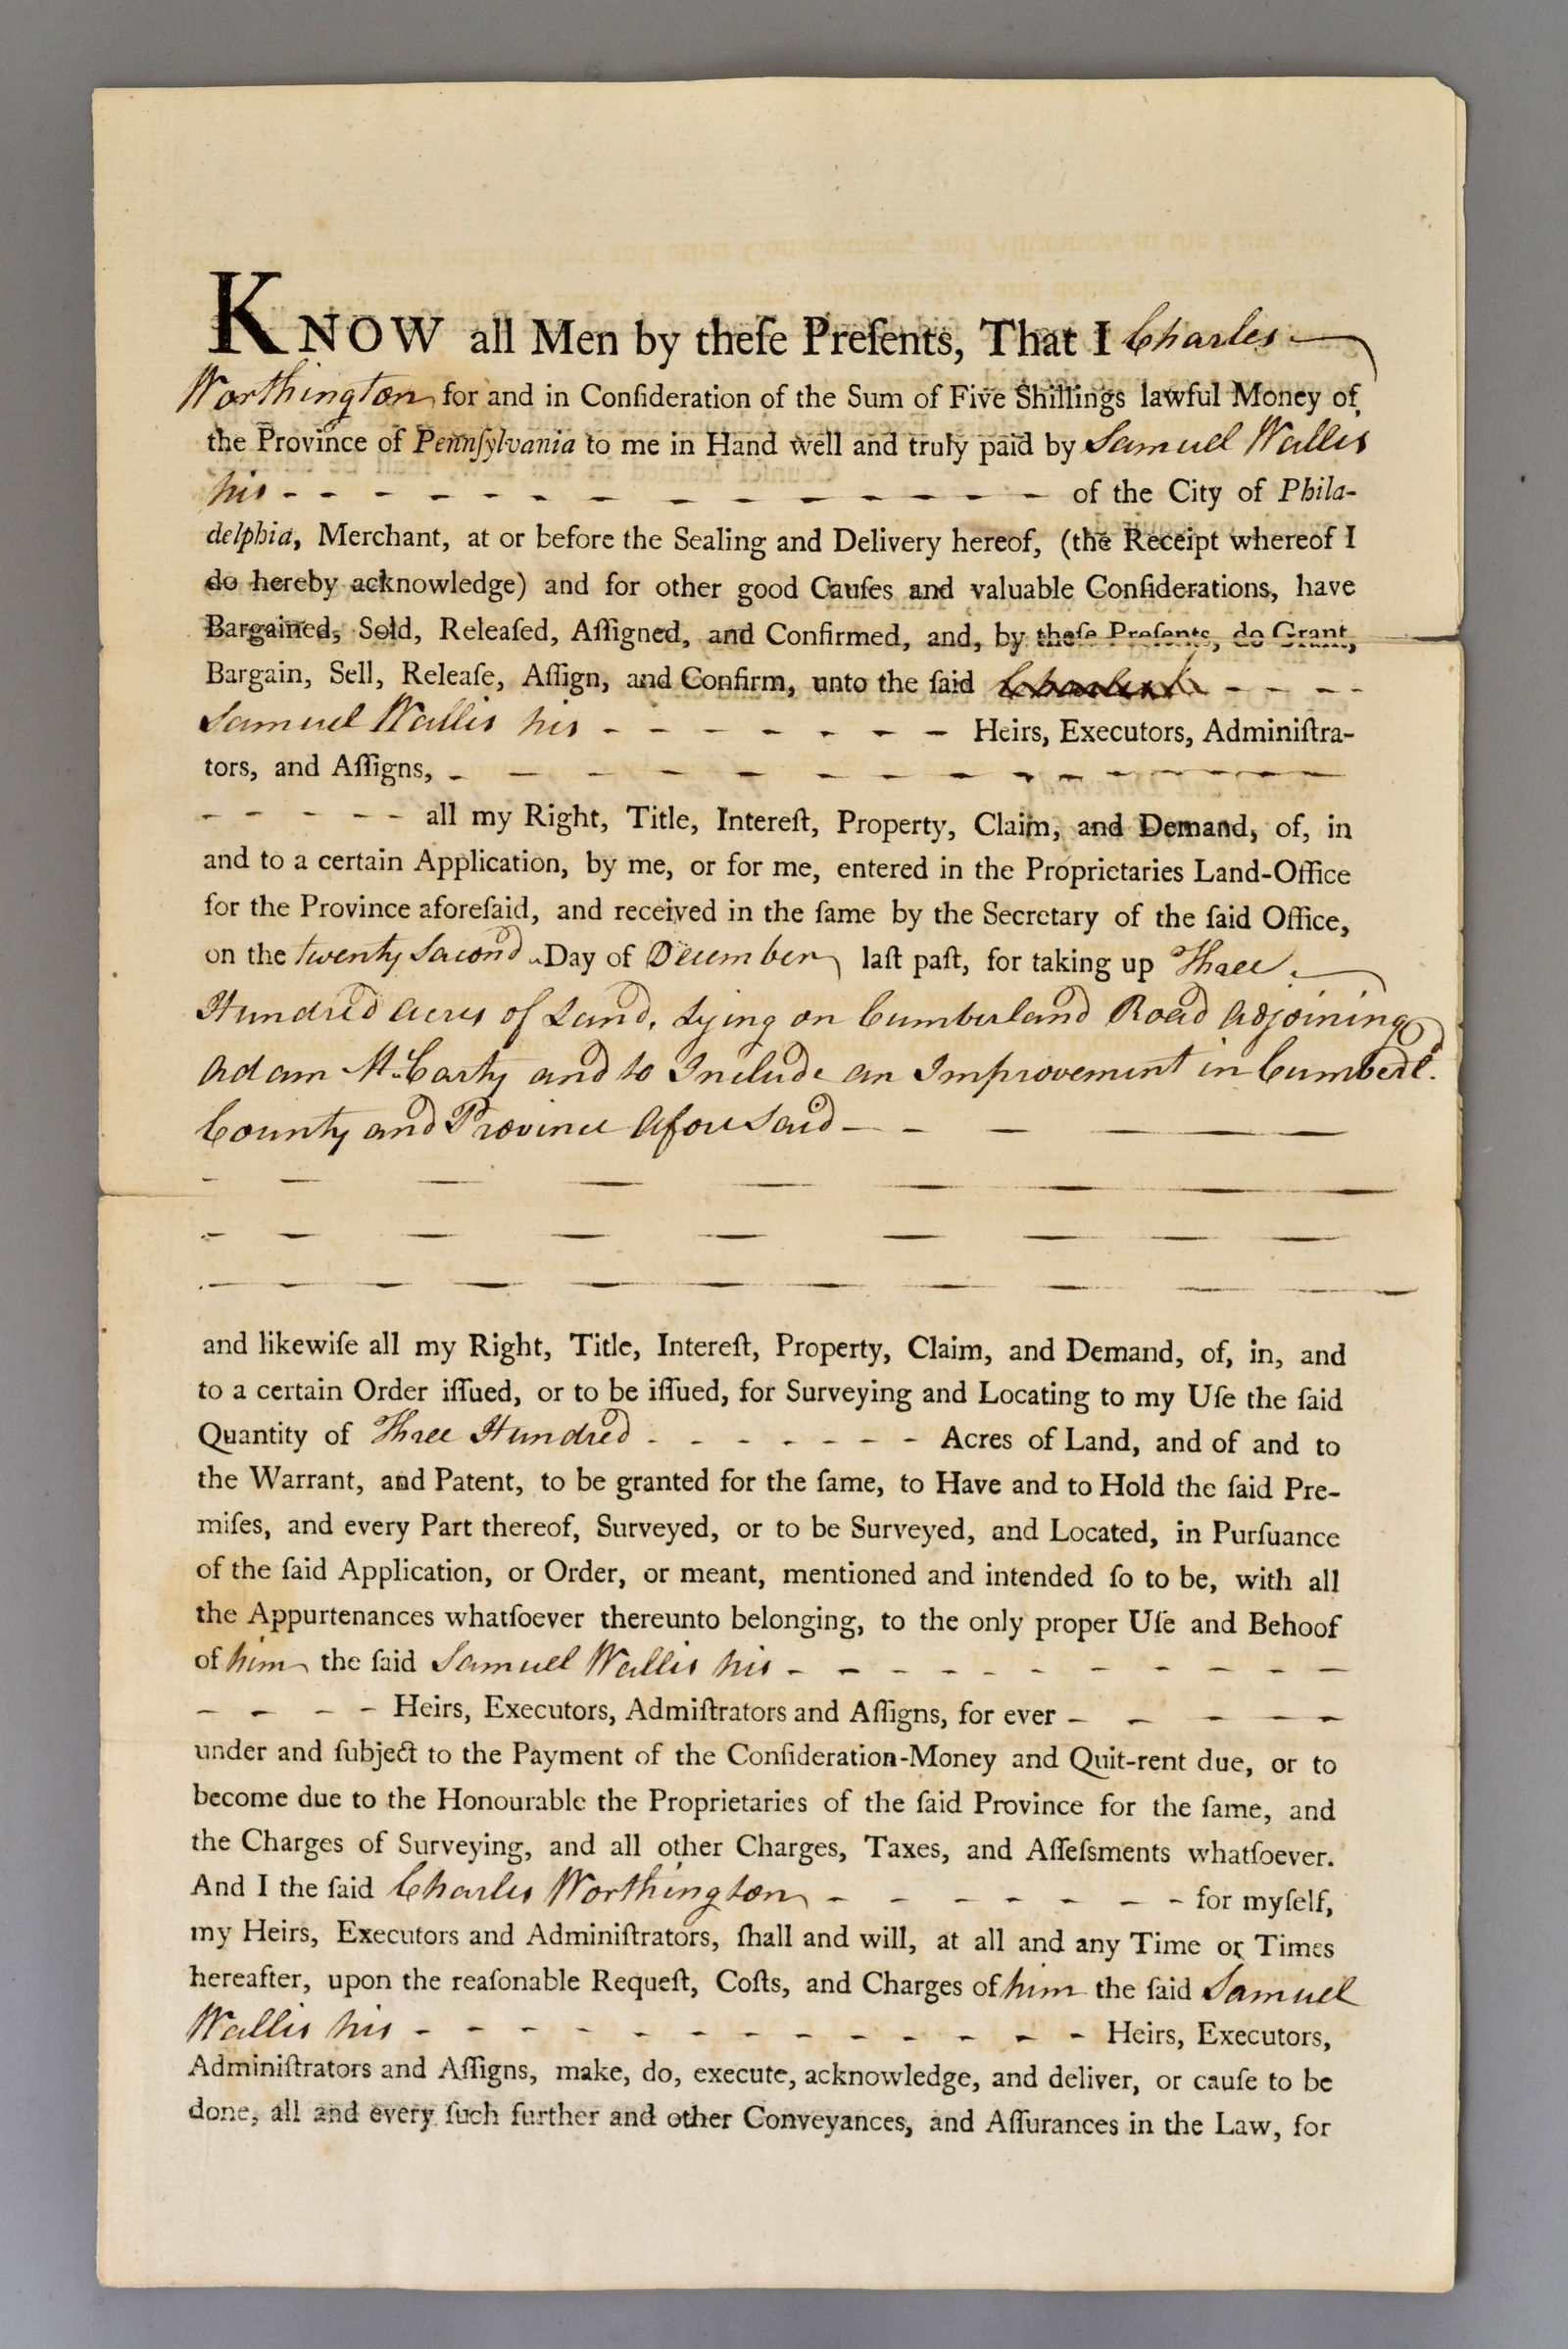 KNOW all Men by theſe Preſents, That I Charles
Worthington for and in Conſideration of the Sum of Five Shillings lawful Money of
the Province of Pennſylvania to me in Hand well and truly paid by Samuel Wallis
his - - - - - - - - - - - - - - of the City of Phila-
delphia, Merchant, at or before the Sealing and Delivery hereof, (the Receipt whereof I
do hereby acknowledge) and for other good Cauſes and valuable Conſiderations, have
Bargained, Sold, Releaſed, Aſſigned, and Confirmed, and, by theſe Preſents, do Grant,
Bargain, Sell, Releaſe, Aſſign, and Confirm, unto the ſaid - - - -
Samuel Wallis his - - - - - - - - Heirs, Executors, Adminiſtra-
tors, and Aſſigns, - - - - - - - - - - - - - -
- - - - - all my Right, Title, Intereſt, Property, Claim, and Demand, of, in
and to a certain Application, by me, or for me, entered in the Proprietaries Land-Office
for the Province aforeſaid, and received in the ſame by the Secretary of the ſaid Office,
on the twenty Second Day of December laſt paſt, for taking up Three
Hundred acres of Land, Lying on Cumberland Road adjoining
Adam McCarty and to Include an Improvement in Cumberld.
County and Province Aforesaid - - - - -
- - - - - - - - -
- - - - - - - - -
- - - - - - - - - - -
and likewiſe all my Right, Title, Intereſt, Property, Claim, and Demand, of, in, and
to a certain Order iſſued, or to be iſſued, for Surveying and Locating to my Uſe the ſaid
Quantity of Three Hundred - - - - - - - Acres of Land, and of and to
the Warrant, and Patent, to be granted for the ſame, to Have and to Hold the ſaid Pre-
miſes, and every Part thereof, Surveyed, or to be Surveyed, and Located, in Purſuance
of the ſaid Application, or Order, or meant, mentioned and intended ſo to be, with all
the Appurtenances whatſoever thereunto belonging, to the only proper Uſe and Behoof
of him the ſaid Samuel Wallis his - - - - - - - - - - -
- - - - Heirs, Executors, Admiſtrators and Aſſigns, for ever - - - - -
under and ſubject to the Payment of the Conſideration-Money and Quit-rent due, or to
become due to the Honourable the Proprietaries of the ſaid Province for the ſame, and
the Charges of Surveying, and all other Charges, Taxes, and Aſſeſsments whatſoever.
And I the ſaid Charles Worthington - - - - - - - for myſelf,
my Heirs, Executors and Adminiſtrators, ſhall and will, at all and any Time or Times
hereafter, upon the reaſonable Requeſt, Coſts, and Charges of him the ſaid Samuel
Wallis his - - - - - - - - - - - - - Heirs, Executors,
Adminiſtrators and Aſſigns, make, do, execute, acknowledge, and deliver, or cauſe to be
done, all and every ſuch further and other Conveyances, and Aſſurances in the Law, for